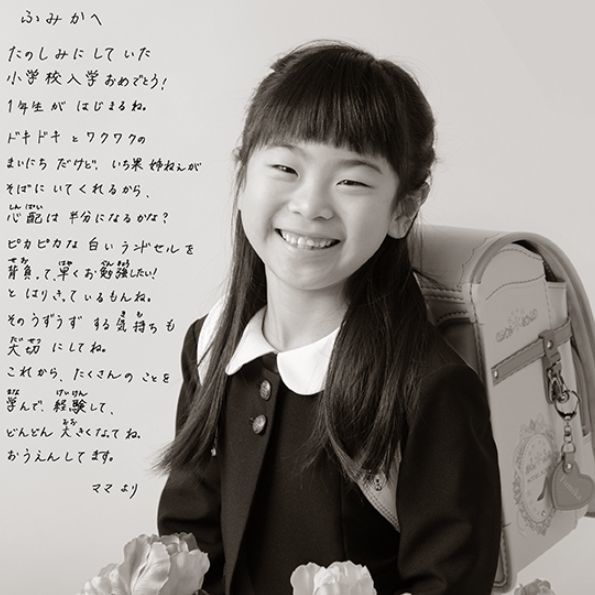 ふみかへ
たのしみにしていた
小学校入学おめでとう!
1年生が はじまるね。
ドキドキとワクワクの
まいにちだけど、いち果姉ねぇが
そばにいてくれるから、
心配は半分になるかな?
ピカピカな白いランドセルを
背負って、早くお勉強したい!
とはりきっているもんね。
そのうずうずする気持ちも
大切にしてね。
これから、たくさんのことを
学んで、経験して、
どんどん大きくなってね。
おうえんしてます。
ママより